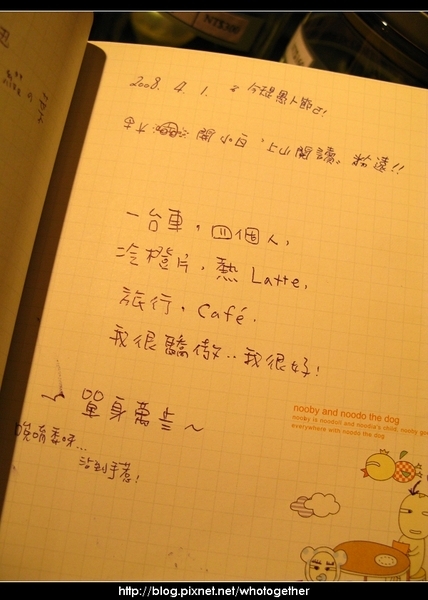 NT$300
2008. 4. 1. 今是愚人節日!
開小白,上山閱讀。粉遠!!
一台車,四個人,
冷橙片,熱 Latte,
旅行,Café.
我很驕傲..我很好!
單身萬歲~
唉唷喂呀...
沾到手惹!
nooby and noodo the dog
nooby is nondoli and noodia's child. nooby goes
everywhere with noodo the dog
http://blog.pixnet.net/whotogether